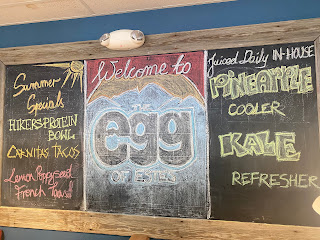 Summer
Specials
HIKERS PROTEIN
BOWL
CARNITAS TACOS
Lemon Poppyseed
French Toast
Welcome to
THE
egg
OF ESTES
Juiced Daily IN-HOUSE
PINEAPPLE
COOLER
KALE
REFRESHER